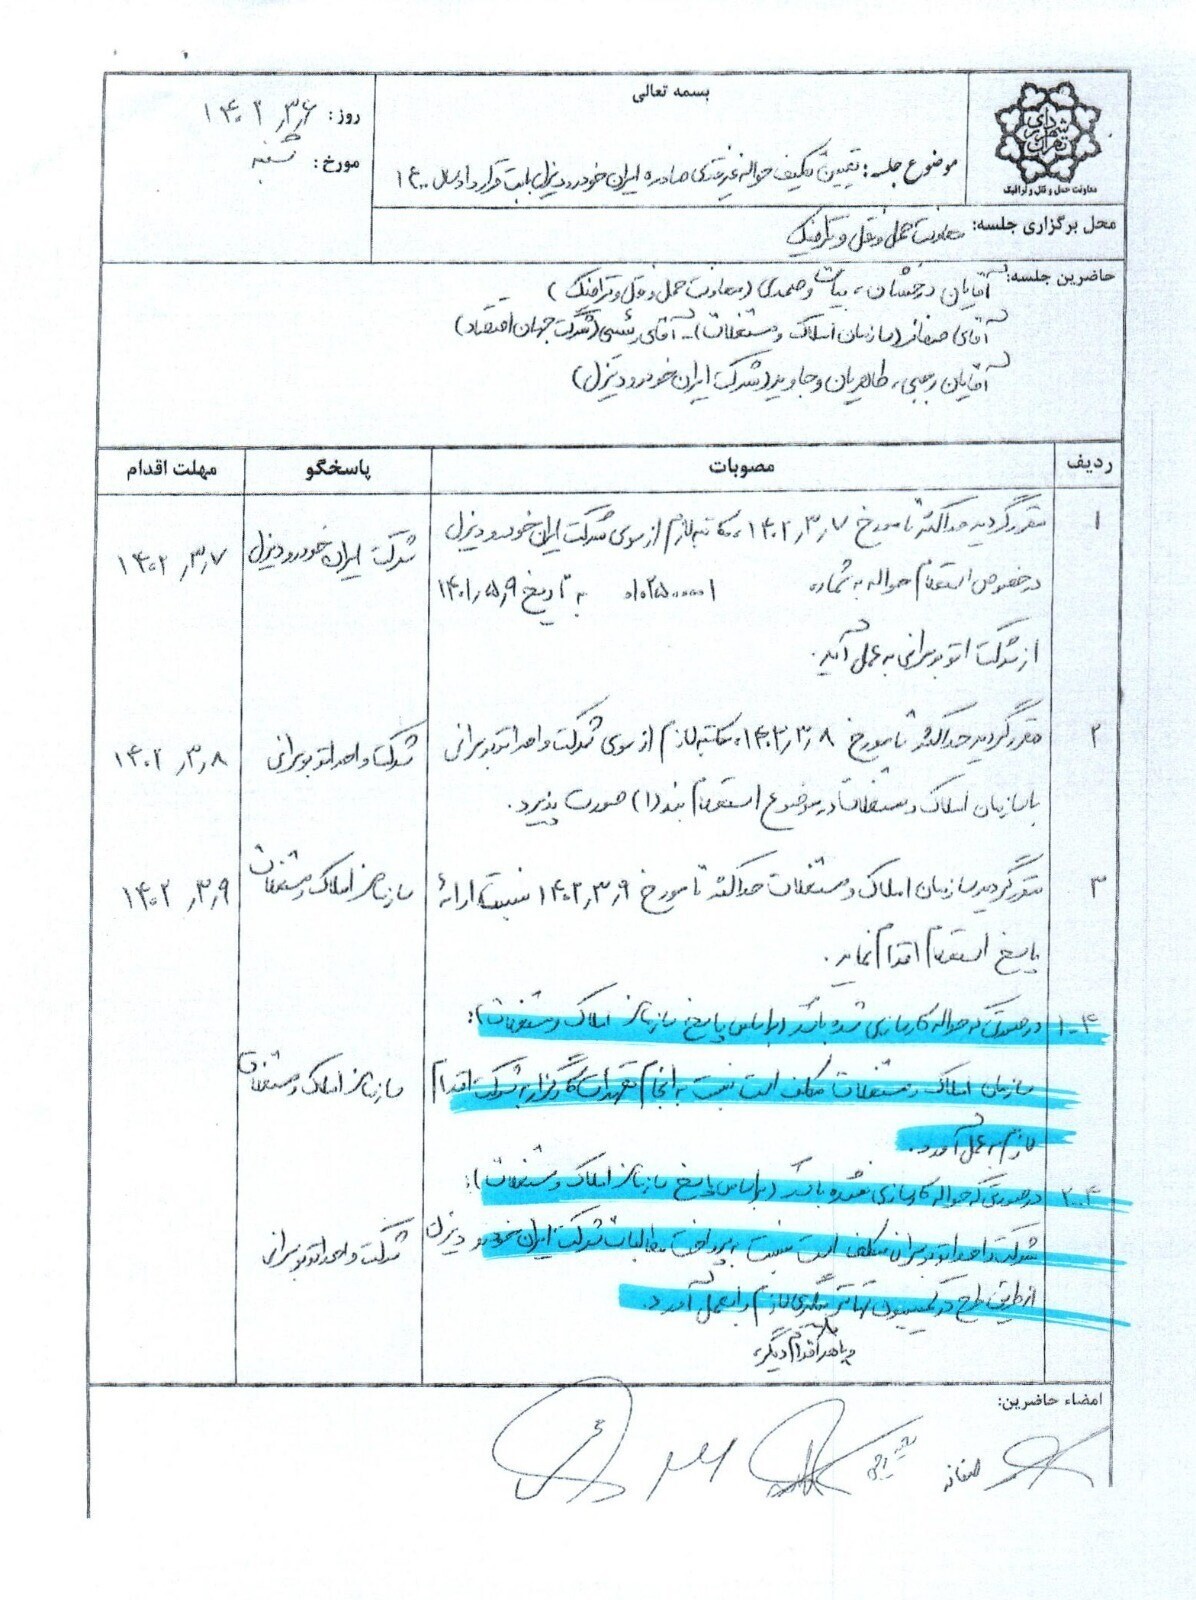 بسمه تعالی
شهرداری تهران
معاونت حمل و نقل و ترافیک
موضوع جلسه: تعیین تکلیف حواله غیرنقدی صادره ایران خودرو دیزل بابت قرارداد سال ۱۴۰۰
روز: ۱۴۰۲/۳/۶
مورخ: شنبه
محل برگزاری جلسه: معاونت حمل و نقل و ترافیک
حاضرین جلسه: آقایان درخشان، بیات و صمدی (معاونت حمل و نقل و ترافیک)
آقای صفائی (سازمان املاک و مستغلات) - آقای رئیسی (شرکت جهان اقتصاد)
آقایان رجبی، طاهریان و جاوید (شرکت ایران خودرو دیزل)
ردیف مصوبات پاسخگو مهلت اقدام
۱ مقرر گردید حداکثر تا مورخ ۱۴۰۲/۳/۷، مکاتبه لازم از سوی شرکت ایران خودرو دیزل شرکت ایران خودرو دیزل ۱۴۰۲/۳/۷
در خصوص استعلام حواله به شماره به تاریخ ۱۴۰۱/۵/۹
از شرکت اتوبوسرانی به عمل آید.
۲ مقرر گردید حداکثر تا مورخ ۱۴۰۲/۳/۸، مکاتبه لازم از سوی شرکت واحد اتوبوسرانی شرکت واحد اتوبوسرانی ۱۴۰۲/۳/۸
با سازمان املاک و مستغلات در موضوع استعلام بند (۱) صورت پذیرد.
۳ مقرر گردید سازمان املاک و مستغلات حداکثر تا مورخ ۱۴۰۲/۳/۹ نسبت به ارائه سازمان املاک و مستغلات ۱۴۰۲/۳/۹
پاسخ استعلام اقدام نماید.
۴-۱ در صورتی که حواله کارسازی شده باشد (براساس پاسخ سازمان املاک و مستغلات):
سازمان املاک و مستغلات مکلف است نسبت به انجام تعهدات کارگزار به شرکت اقدام سازمان املاک و مستغلات
لازم به عمل آورد.
۴-۲ در صورتی که حواله کارسازی نشده باشد (براساس پاسخ سازمان املاک و مستغلات):
شرکت واحد اتوبوسرانی مکلف است نسبت به پرداخت مطالبات شرکت ایران خودرو دیزل شرکت واحد اتوبوسرانی
از طریق طرح در کمیسیون تهاتر پیگیری لازم را بعمل آورد.
و یا هر اقدام دیگر
امضاء حاضرین:
صفائی